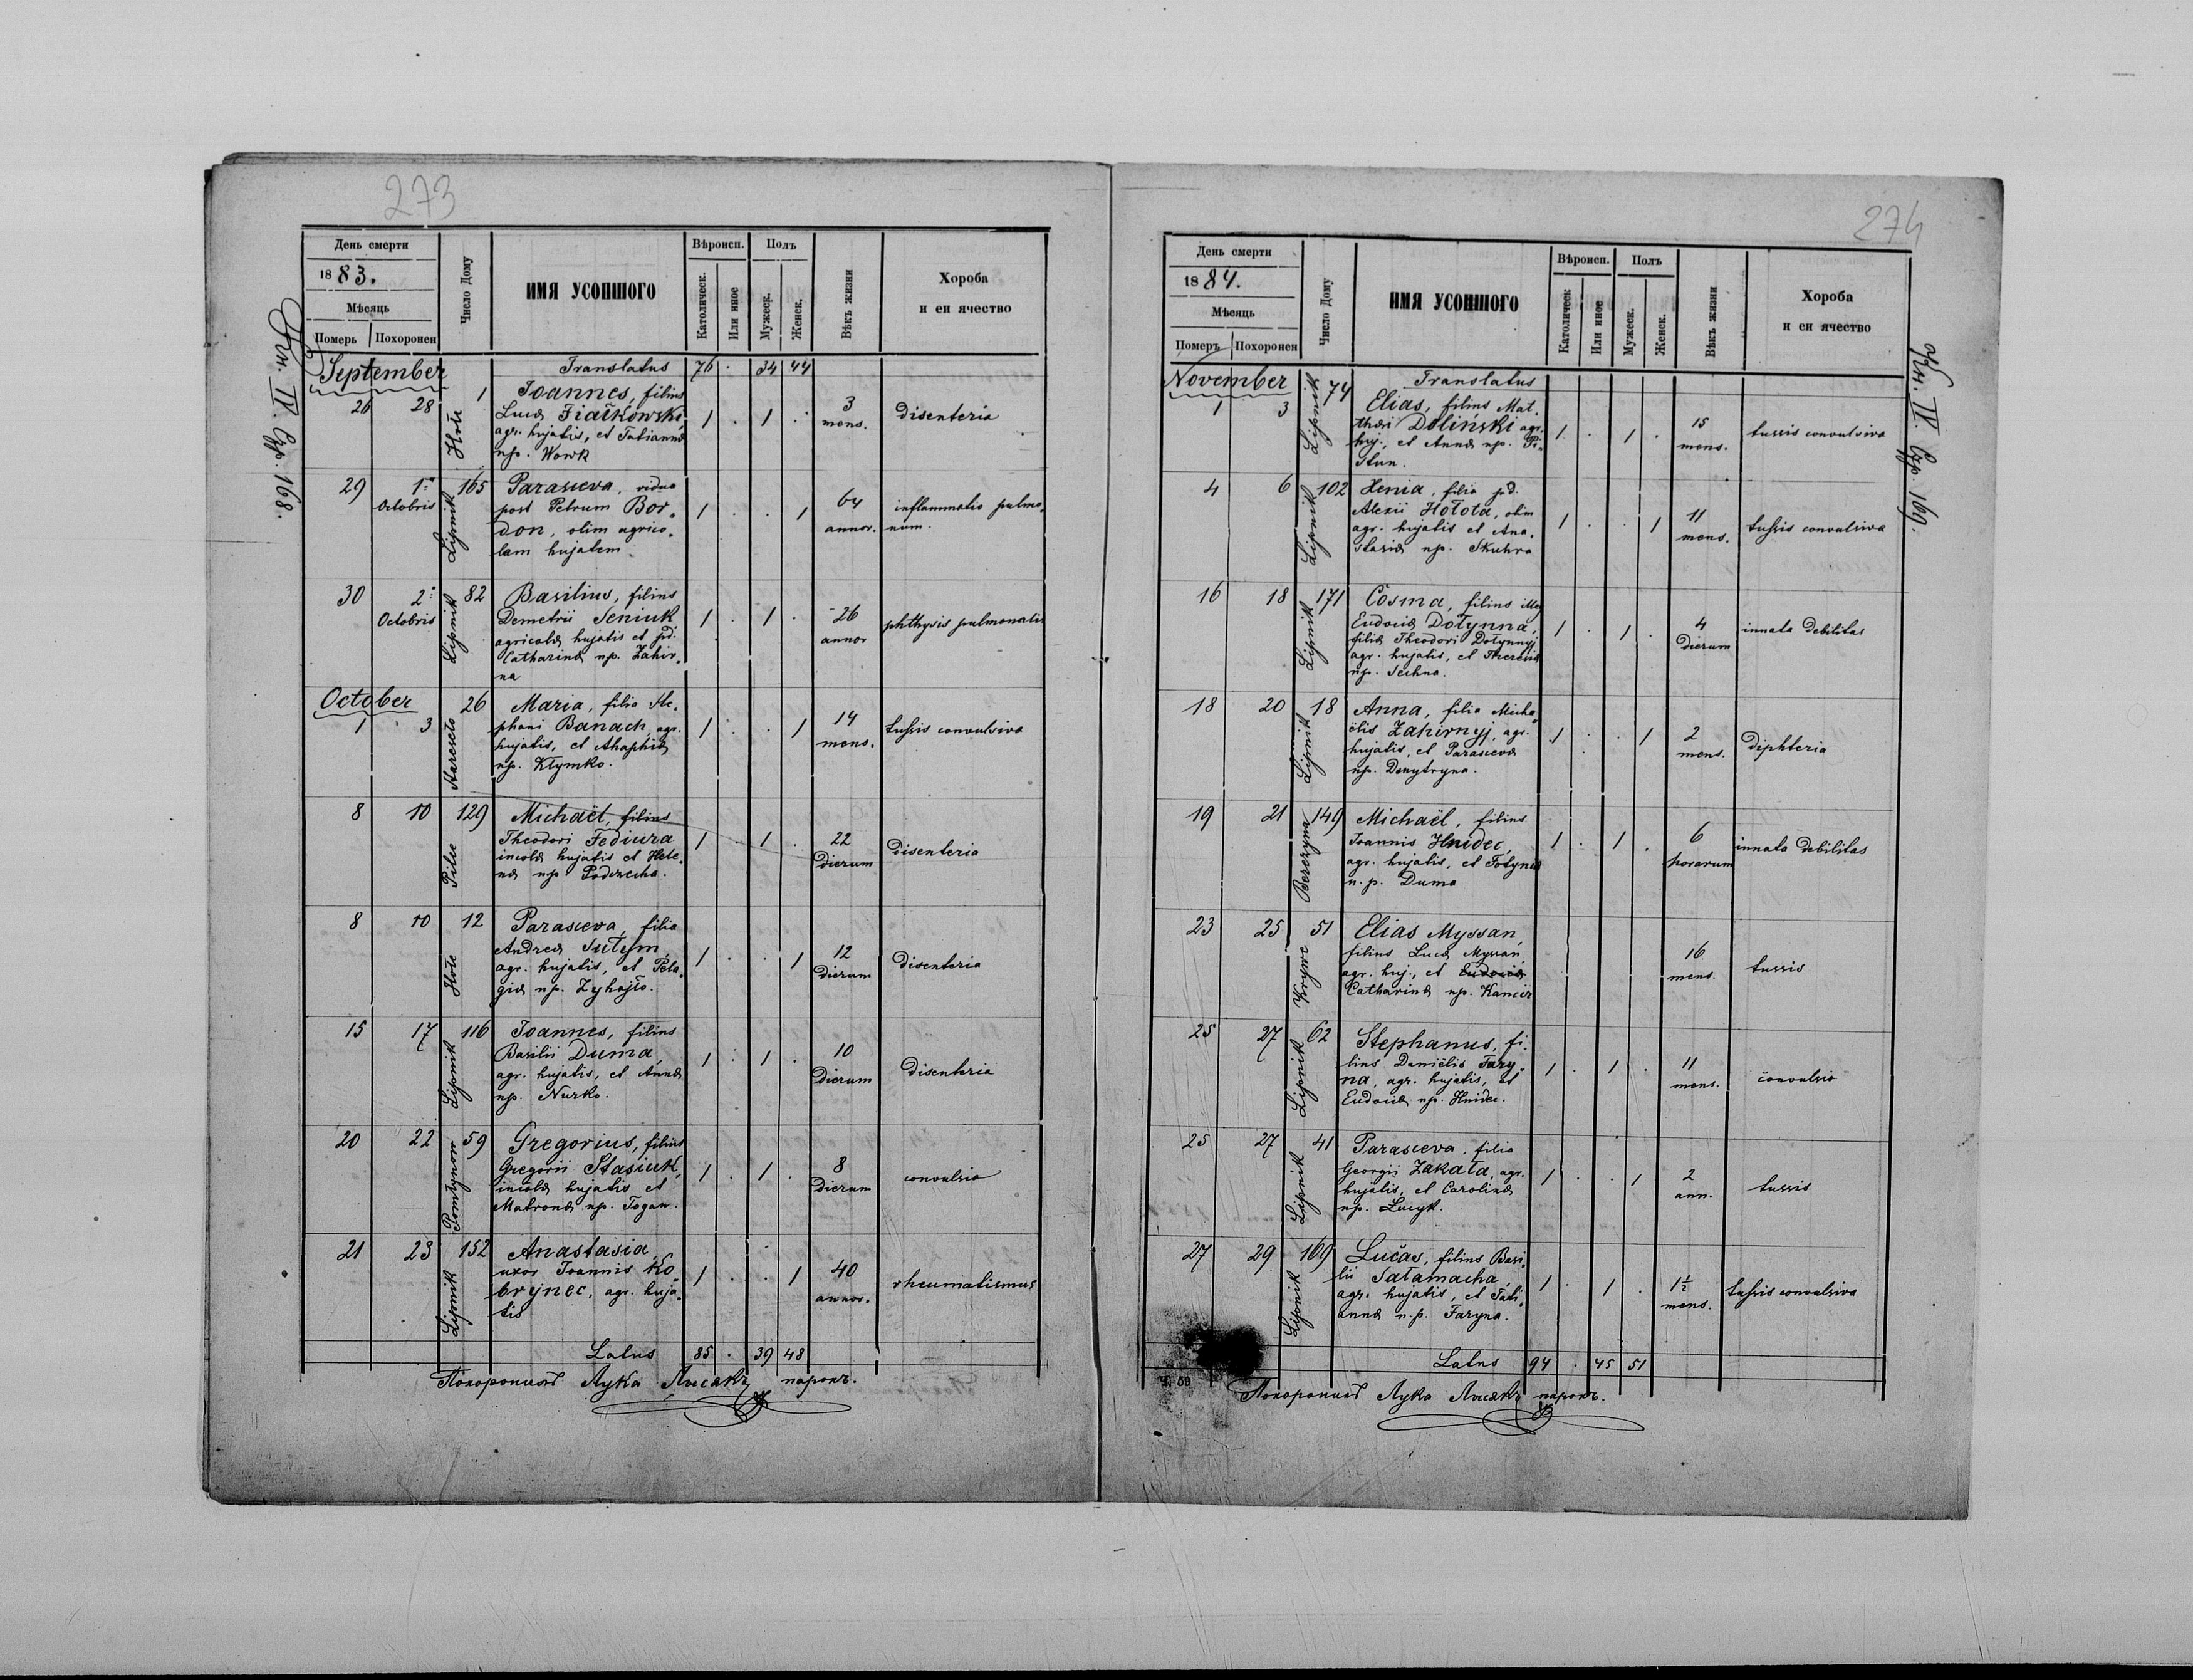 273
День смерти
1883.
Мѣсяць
Померъ Похоронен
Число Дому
ИМЯ УСОПШОГО
Вѣроисп.
Католическ.
Или иное
Полъ
Мужеск.
Женск.
Вѣкъ жизни
Хороба
и еи ячество
IV. Стр. 168.
September
Translatus 76 . 34 44
26 28 Hołe 1
Joannes, filius
Lucæ Fiałkowski,
agr. hujatis, et Tatiannæ
np. Wowk
1 . 1 .
3
mens.
disenteria
29 1º Octobris Lipnik 165
Parasceva, vidua
post Petrum Bor-
don, olim agrico-
lam hujatem
1 . . 1
64
annor.
inflammatio pulmo-
num.
30 2º Octobris Lipnik 82
Basilius, filius
Demetrii Seniuk
agricolæ hujatis et pd.
Catharinæ np. Zahir-
na
1 . 1 .
26
annor
phthysis pulmonalis
October
1 3 26
Maria, filia Ste-
phani Banach, agr.
hujatis, et Ahaphiæ
np. Kłymko.
1 . . 1
14
mens.
tussis convulsiva
8 10 129
Michaël, filius
Theodori Fediura
incolæ hujatis et Hele-
næ np
1 . 1 .
22
dierum
disenteria
8 10 Hołe 12
Parasceva, filia
Andreæ Sułym,
agr. hujatis, et Pela-
giæ np. Zyhajło.
1 . . 1
12
dierum
disenteria
15 17 Lipnik 116
Joannes, filius
Basilii Duma,
agr. hujatis, et Annæ
np. Nurko.
1 . 1 .
10
dierum
disenteria
20 22 59
Gregorius, filius
Gregorii Stasiuk,
incolæ hujatis et
Matronæ np. Togan.
1 . 1 .
8
dierum
convulsio
21 23 Lipnik 152
Anastasia,
uxor Joannis Ko-
brynec, agr. huja-
tis
1 . . 1
40
annor.
rheumatismus
Latus 85 . 39 48
Похоронилъ Лука Лисякъ парохъ.
274
День смерти
1884.
Мѣсяць
Померъ Похоронен
Число Дому
ИМЯ УСОПШОГО
Вѣроисп.
Католическ
Или иное
Полъ
Мужеск.
Женск.
Вѣкъ жизни
Хороба
и еи ячество
IV. Стр. 169.
November
Translatus
1 3 Lipnik 74
Elias, filius Mat-
thæi Doliński agr.
huj., et Annæ np. Pi-
stun.
1 . 1 .
15
mens.
tussis convulsiva
4 6 Lipnik 102
Xenia, filia pd.
Alexii Hołota, olim
agr. hujatis et Ana-
stasiæ np. Skuhra
1 . . 1
11
mens.
tussis convulsiva
16 18 Lipnik 171
Cosma, filius illeg
Eudociæ Dołynna,
filiæ Theodori Dołynnyj
agr. hujatis, et Theresiæ
np. Sechna.
1 . 1 .
4
dierum
innata debilitas
18 20 Lipnik 18
Anna, filia Micha-
ëlis Zahirnyj, agr.
hujatis, et Parascevæ
np. Dmytryna.
1 . . 1
2
mens.
diphteria
19 21 Berezyna 149
Michaël, filius
Joannis Hnidec,
agr. hujatis, et Tołynæ
n.p. Duma
1 . 1 .
6
horarum
innata debilitas
23 25 Kryve 51
Elias Myssan,
filius Lucæ Myssan,
agr. huj., et Eudociæ
Catharinæ np. Kancir
16
mens.
tussis
25 27 Lipnik 62
Stephanus, fi-
lius Daniëlis Fary-
na, agr. hujatis, et
Eudociæ np. Hnidec.
1 . 1 .
11
mens.
convulsio
25 27 Lipnik 41
Parasceva, filia
Georgii Zakała, agr.
hujatis, et Carolinæ
np. Lucyk.
1 . . 1
2
ann.
tussis
27 29 Lipnik 169
Lucas, filius Basi-
lii Sałamacha,
agr. hujatis, et Tati-
annæ n.p. Faryna.
1 . 1 .
1½
mens.
tussis convulsiva
Latus 94 . 45 51
Похоронилъ Лука Лисякъ парохъ.